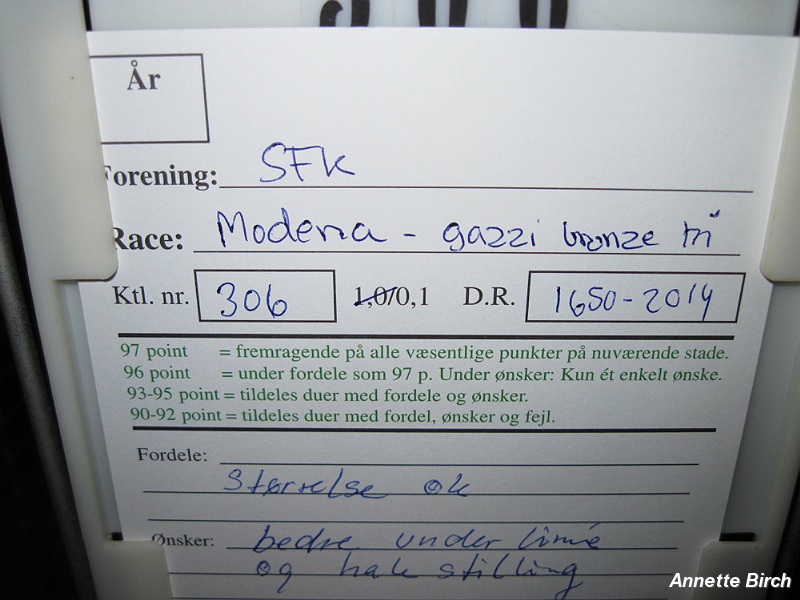 År
Forening: SFK
Race: Modena - gazzi bronze tri
Ktl. nr. 306 1,0/0,1 D.R. 1650-2014
97 point = fremragende på alle væsentlige punkter på nuværende stade.
96 point = under fordele som 97 p. Under ønsker: Kun ét enkelt ønske.
93-95 point = tildeles duer med fordele og ønsker.
90-92 point = tildeles duer med fordel, ønsker og fejl.
Fordele:
Størrelse ok
Ønsker: bedre under linie
og hale stilling
Annette Birch